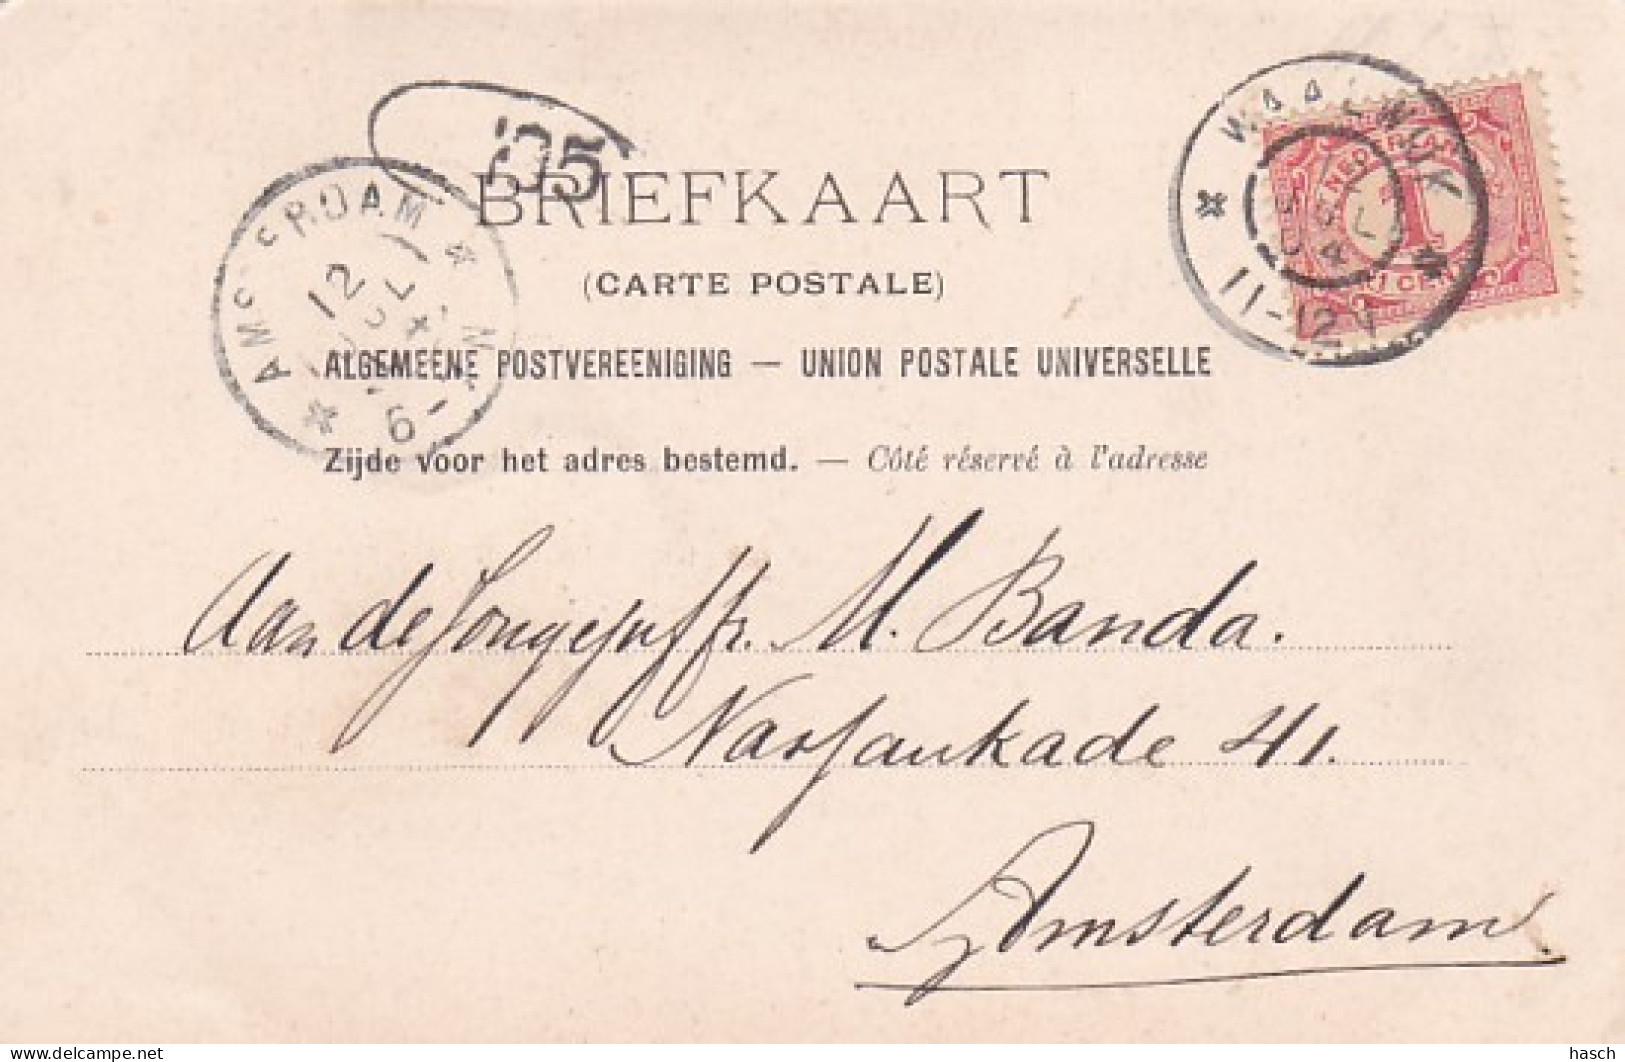 '05
BRIEFKAART
(CARTE POSTALE)
ALGEMEENE POSTVEREENIGING — UNION POSTALE UNIVERSELLE
Zijde voor het adres bestemd. — Côté réservé à l'adresse
WAALWIJK
11-12 V
1
CENT
AMSTERDAM
12
Aan de Jongejuffr. M. Banda.
Nassaukade 41.
Amsterdam.
delcampe.net
hasch